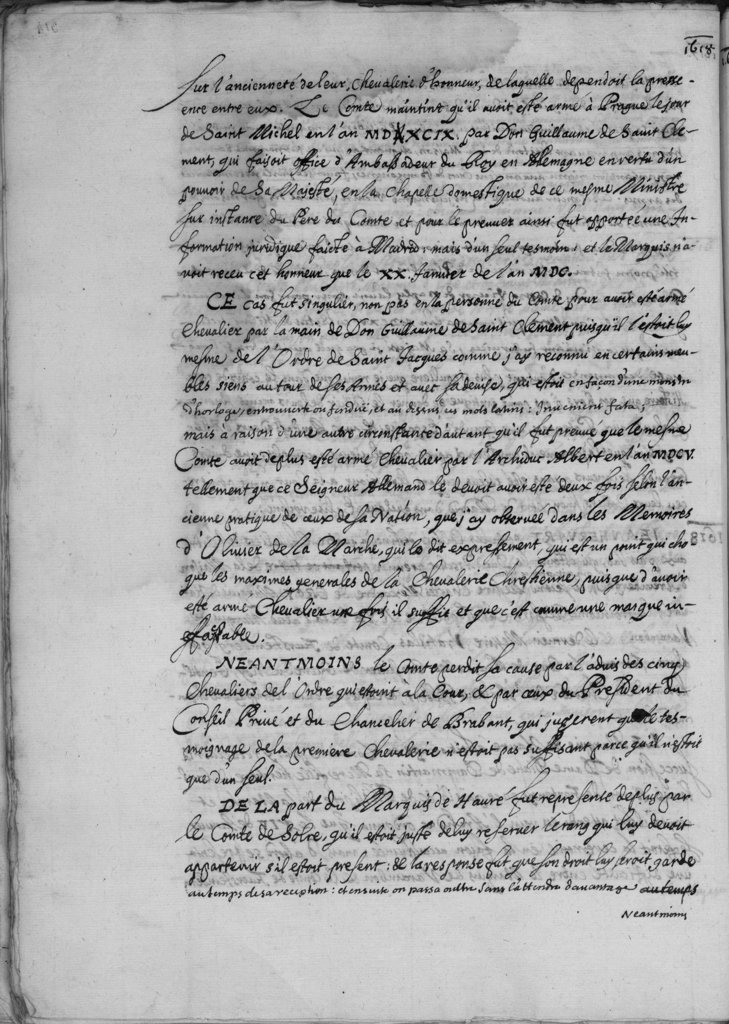 1618
Sur l'ancienneté de leur Chevalerie d'honneur, de laquelle dependoit la prese-
ence entre eux. Le Comte maintint qu'il avoit esté armé à Prague le jour
de Saint Michel en l'an MDXCIX. par Don Guillaume de Saint Cle-
ment, qui faisoit office d'Ambassadeur du Roy en Allemagne en vertu d'un
pouvoir de Sa Majesté, en la Chapelle domestique de ce mesme Ministre
sur instance du Pere du Comte et pour le preuver ainsi fut apportée une In-
formation juridique faicte à Madrid, mais d'un seul tesmoin: et le Marquis n'a-
voit receu cet honneur que le XX. Janvier de l'an MDC.
CE cas fut singulier, non pas en la personne du Comte pour avoir esté armé
Chevalier par la main de Don Guillaume de Saint Clement puisqu'il l'estoit luy
mesme de l'Ordre de Saint Jacques comme j'ay reconnu en certains meu-
bles siens autour de ses Armes et avec sa devise, qui estoit en façon d'une
d'horloge, entrouverte ou fendue, et au dessus ces mots latins: Invenient fata;
mais à raison d'une autre circonstance d'autant qu'il fut preuvé que le mesme
Comte avoit de plus esté armé Chevalier par l'Archiduc Albert en l'an MDCV.
tellement que ce Seigneur Allemand le devoit avoir esté deux fois selon l'an-
cienne pratique de ceux de sa Nation, que j'ay observée dans les Memoires
d'Olivier de la Marche, qui le dit expressement, qui est un point qui cho-
que les maximes generales de la Chevalerie Chrestienne, puisque d'avoir
esté armé Chevalier une fois il suffit et que c'est comme une marque in-
effassable.
NEANTMOINS le Comte perdit sa cause par l'advis des cinq
Chevaliers de l'Ordre qui estoint a la Cour, & par ceux du President du
Conseil Privé et du Chancelier de Brabant, qui jugerent que le tes-
moignage de la premiere Chevalerie n'estoit pas suffisant parce qu'il n'estoit
que d'un seul.
DE LA part du Marquis de Hauré fut representé de plus par
le Comte de Solre, qu'il estoit juste de luy reserver le rang qui luy devoit
appartenir s'il estoit present: & la response fut que son droit luy seroit gardé
au temps de sa reception: et ensuite on passa oultre sans l'attendre d'avantage au temps
Neantmoins